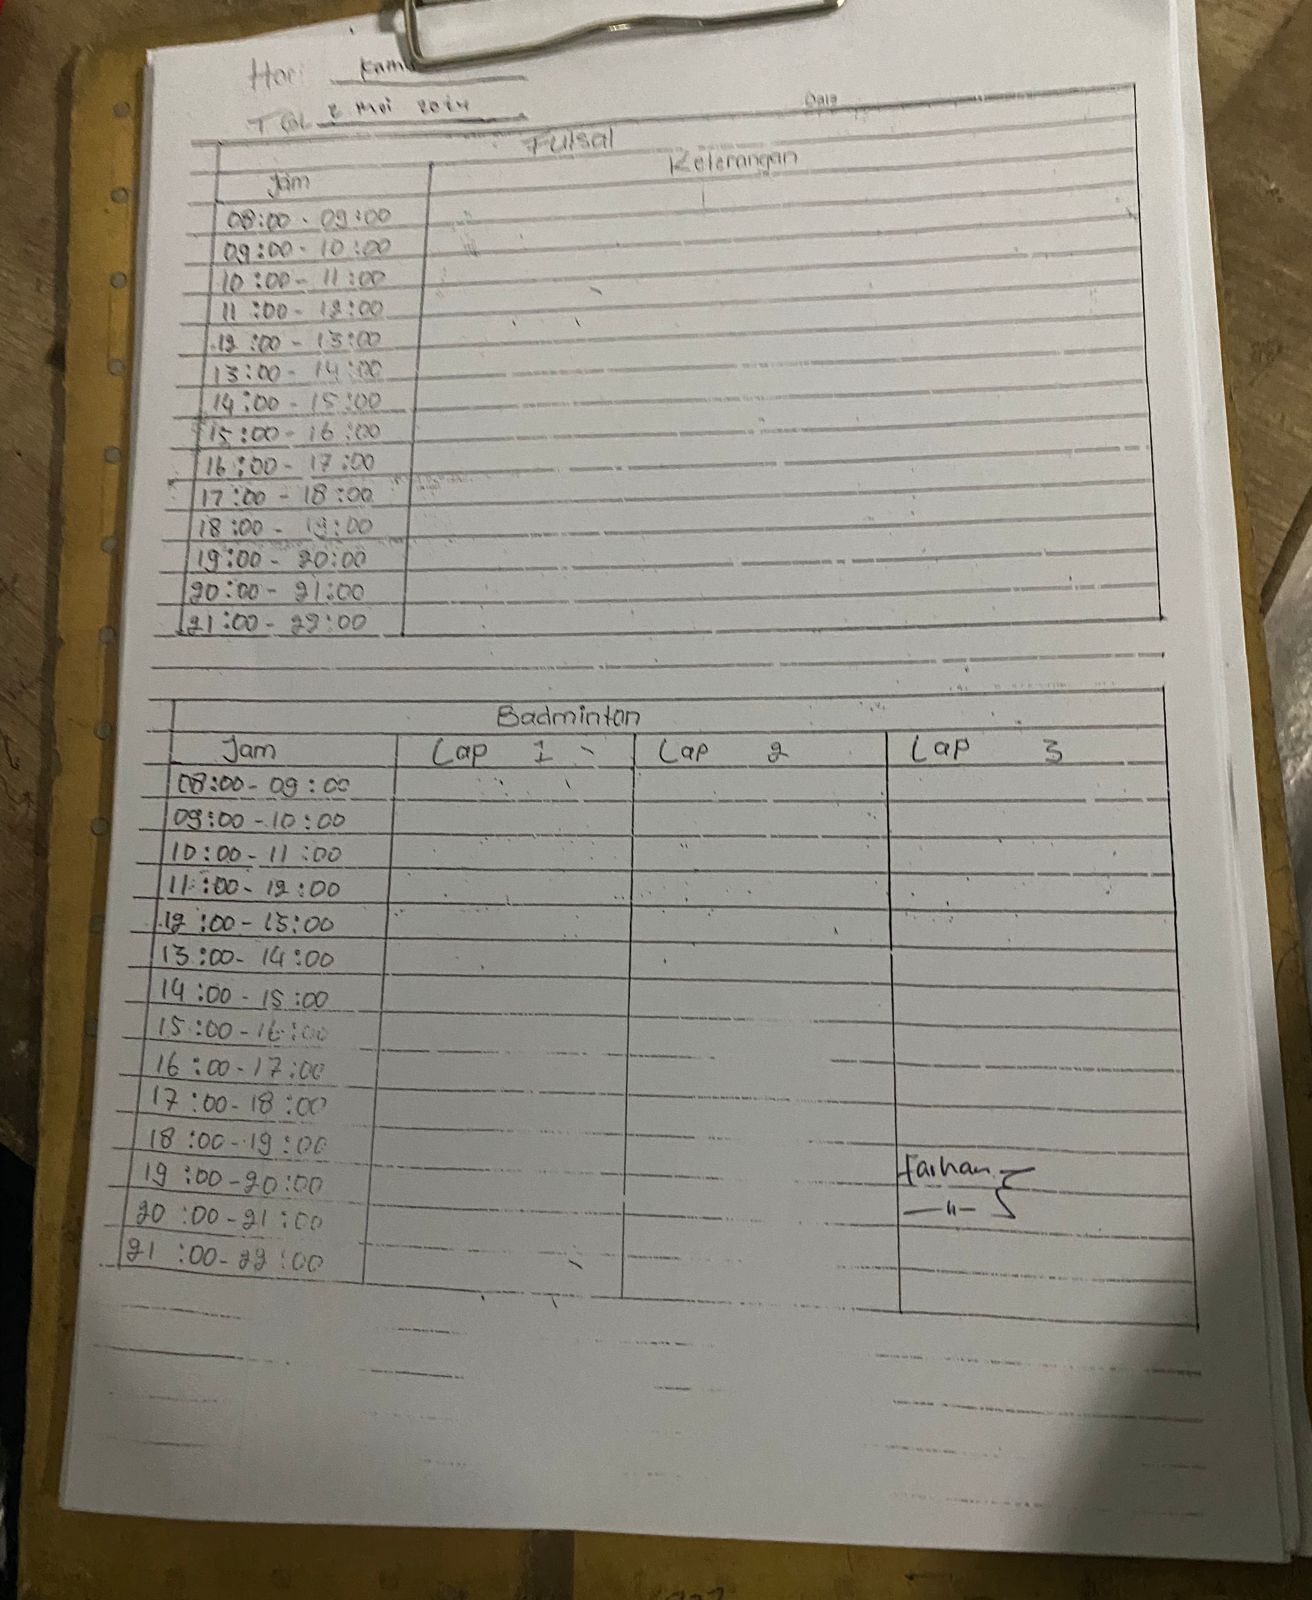 Hari Kam
TGL 2 Mei 2024
Futsal
Jam Keterangan
08:00 - 09:00
09:00 - 10:00
10:00 - 11:00
11:00 - 12:00
12:00 - 13:00
13:00 - 14:00
14:00 - 15:00
15:00 - 16:00
16:00 - 17:00
17:00 - 18:00
18:00 - 19:00
19:00 - 20:00
20:00 - 21:00
21:00 - 22:00
Badminton
Jam Lap 1 Lap 2 Lap 3
08:00 - 09:00
09:00 - 10:00
10:00 - 11:00
11:00 - 12:00
12:00 - 13:00
13:00 - 14:00
14:00 - 15:00
15:00 - 16:00
16:00 - 17:00
17:00 - 18:00
18:00 - 19:00
19:00 - 20:00 Farhan
20:00 - 21:00 —"—
21:00 - 22:00